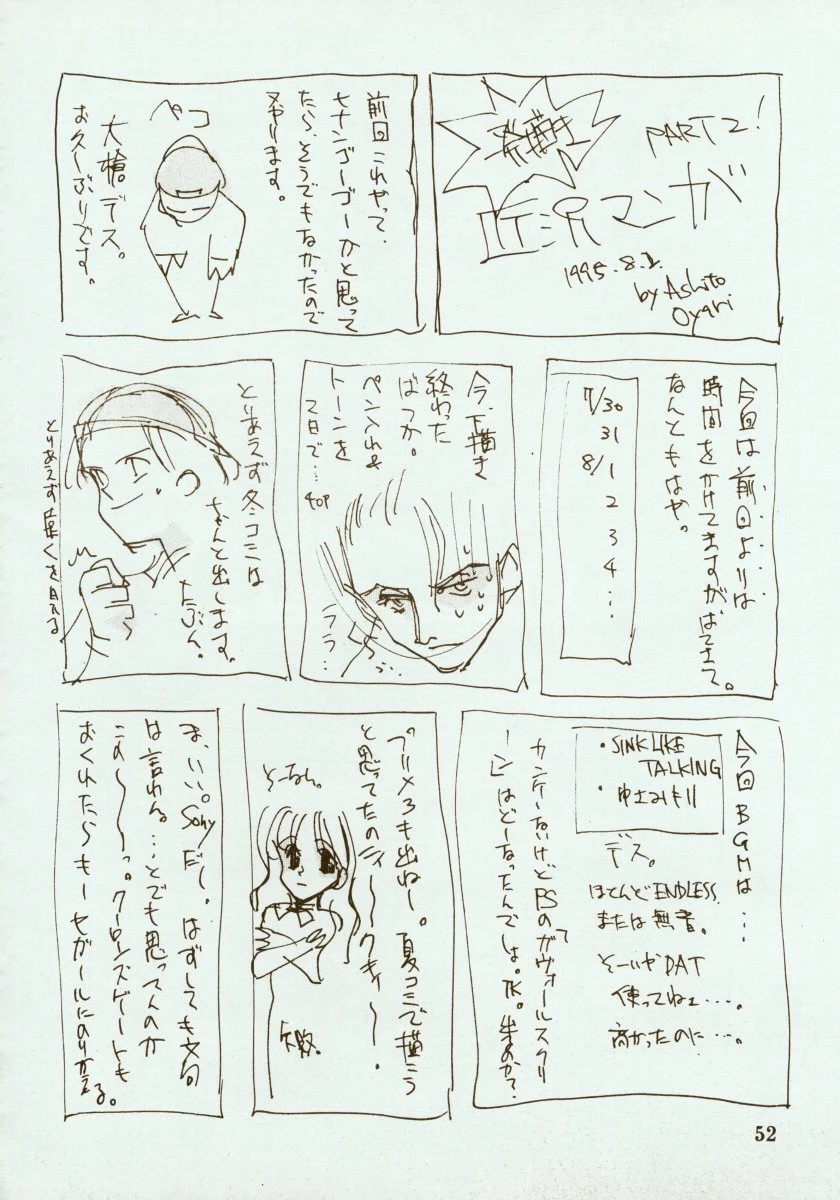 PART2!
マンガ
1995.8.2.
by Ashito
Oyari
前回これやって、
ヒナンゴーゴーかと思って
たら、そうでもなかったので
又やります。
ペコ
大槍デス。
お久しぶりです。
今回は前回よりは
時間をかけてますがはてさて。
なんともはや。
7/30
31
8/1
2
3
4
⋮
今、下描き
終わった
ばっか。
ペン入れ&
トーンを
2日で…
40P
ララ…
とりあえず冬コミは
ちゃんと出します。
たぶん。
とりあえず
今回BGMは…
・SINK LIKE
TALKING
・ゆ士みもり
デス。
ほとんどENDLESS
または無音。
そーいやDAT
使ってねェ…。
高かったのに…。
カンケーないけどPSの「ガヴォールスクリ
ーン」はどーなったんでしょ。TK。
プリメ3も出ねー。夏コミで描こう
と思ってたのにィ〜〜クキィ〜〜。
そーなん。
ま、いい。Sonyだし。はずしても文句
は言わん。…とでも思ってんのか
この〜〜〜っ。クーロンズゲートも
おくれたらもーセガールにのりかえる。
52